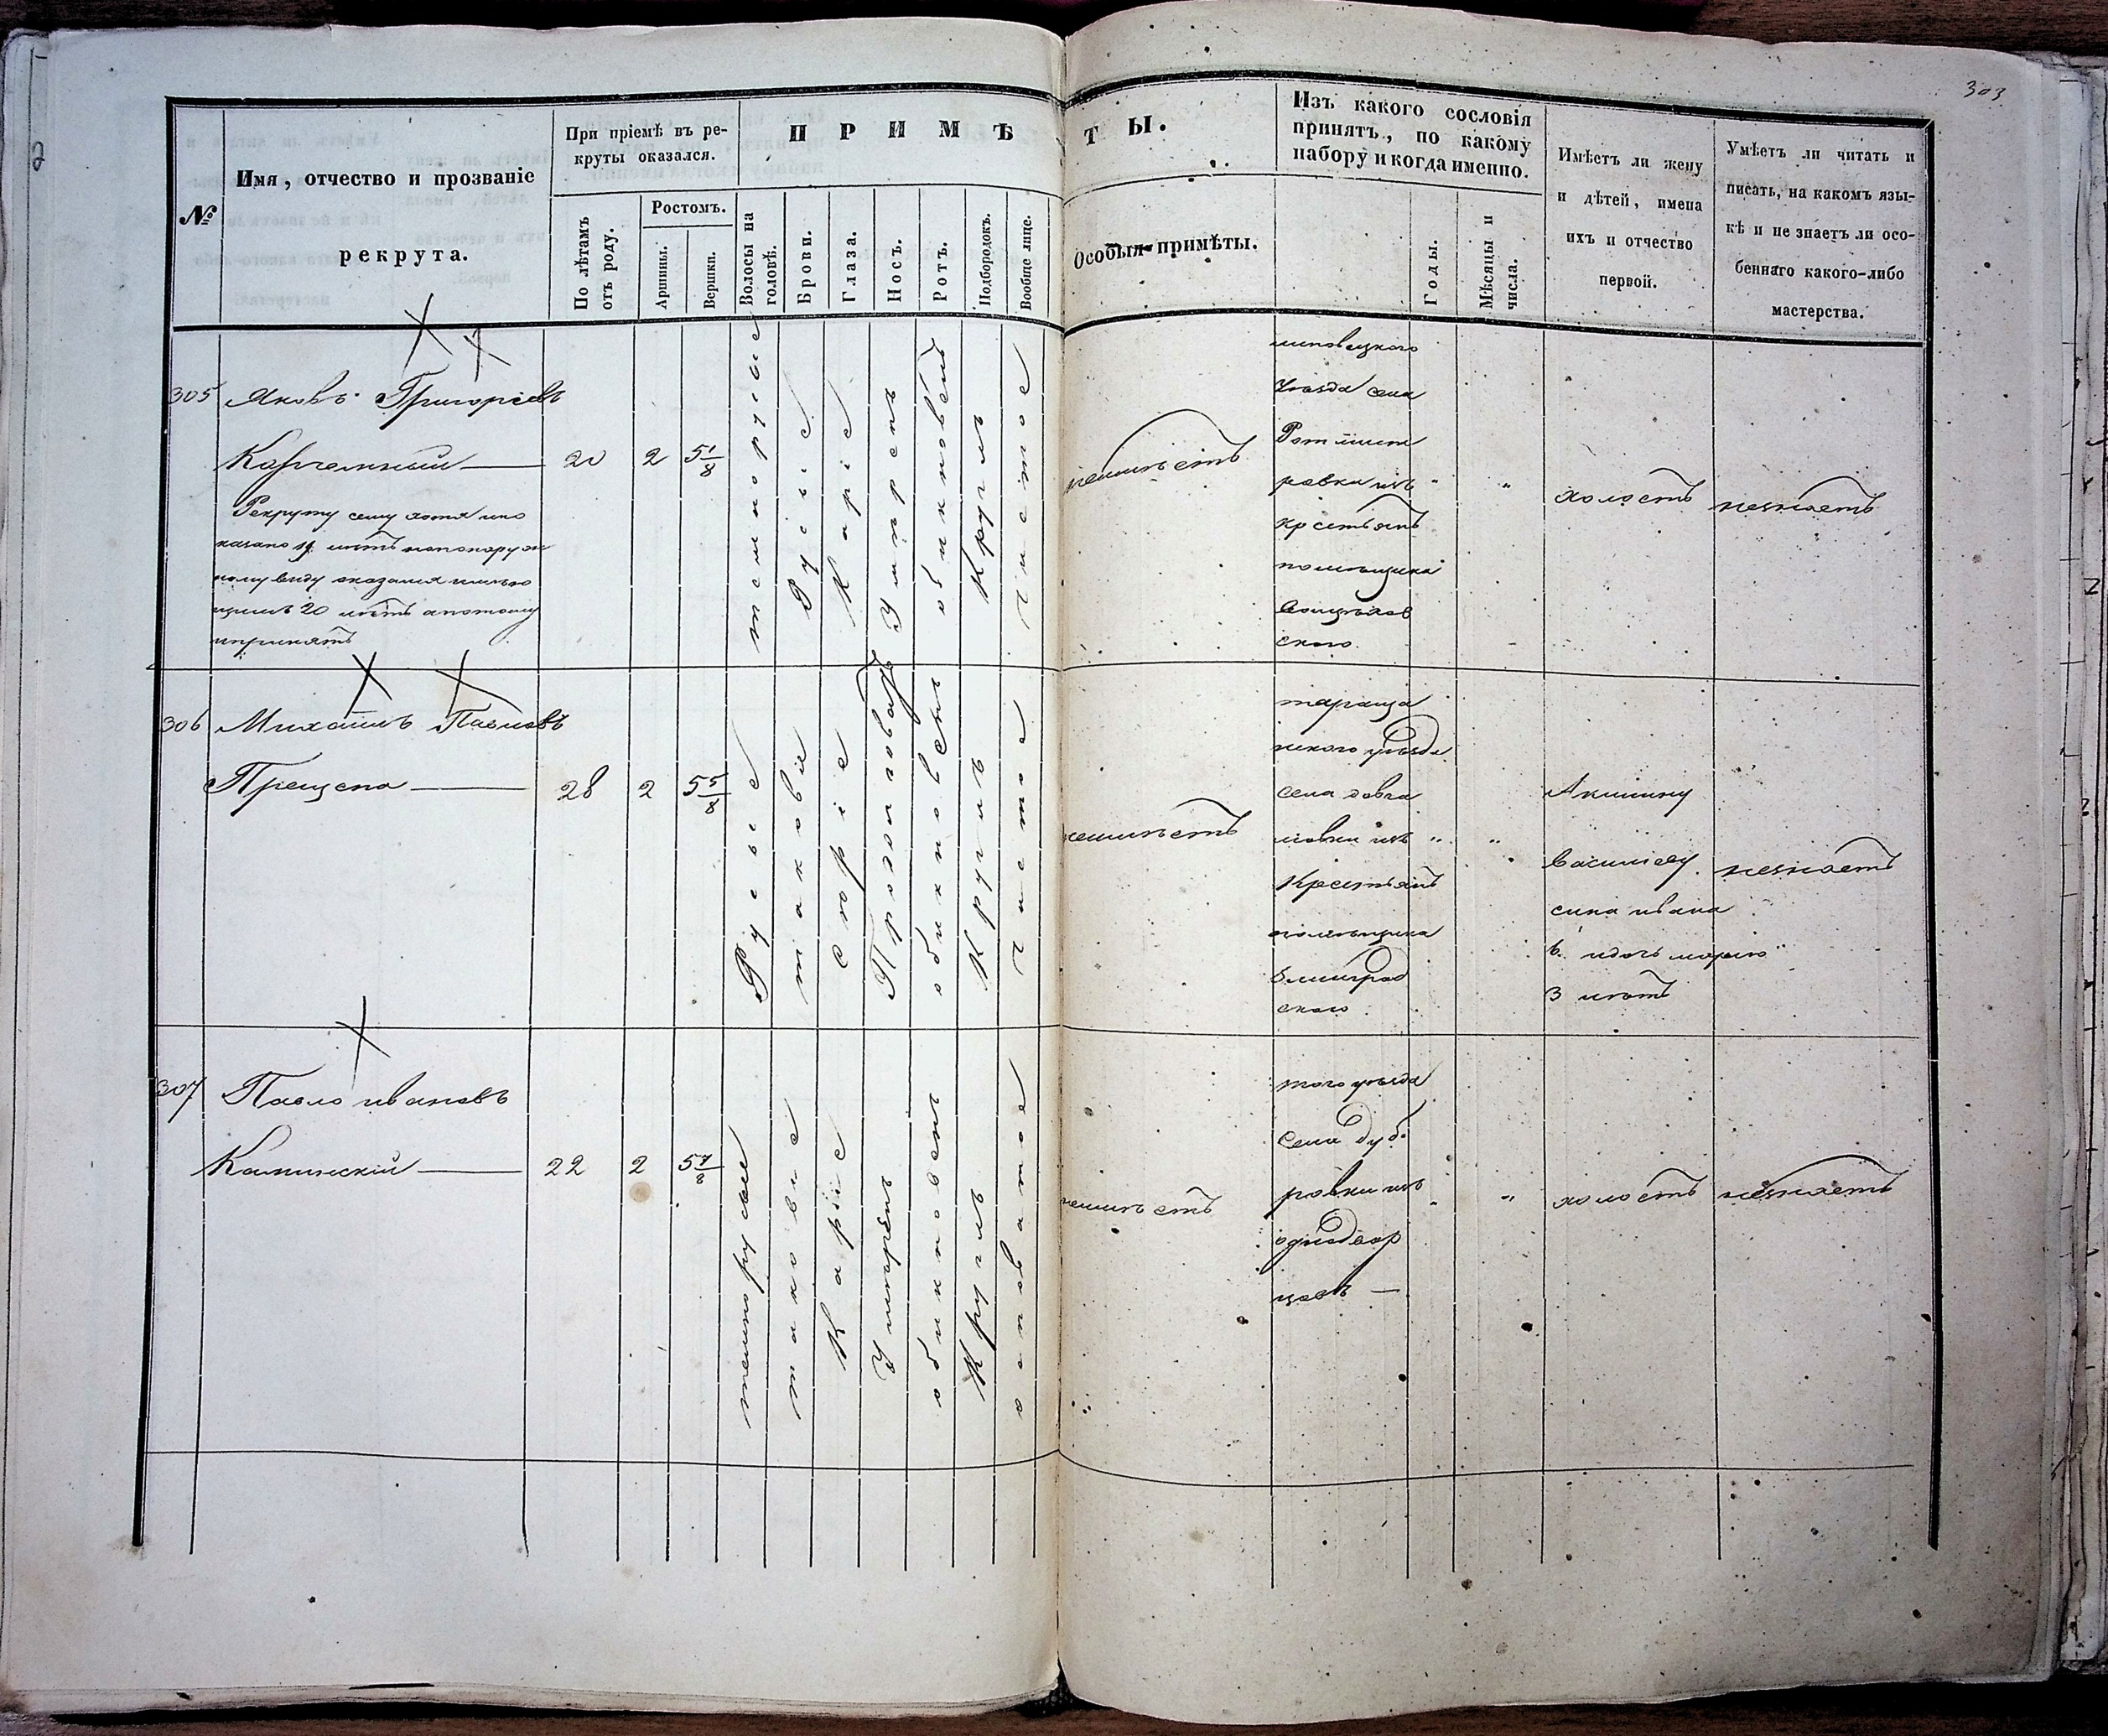 303
№
Имя, отчество и прозваніе
рекрута.
При пріемѣ въ ре-
круты оказался.
По лѣтамъ
отъ роду.
Ростомъ.
Аршины.
Вершки.
ПРИМѢТЫ.
Волосы на
головѣ.
Брови.
Глаза.
Носъ.
Ротъ.
Подбородокъ.
Вообще лице.
Особыя примѣты.
Изъ какого сословія
принятъ, по какому
набору и когда именно.
Годы.
Мѣсяцы и
числа.
Имѣетъ ли жену
и дѣтей, имена
ихъ и отчество
первой.
Умѣетъ ли читать и
писать, на какомъ язы-
кѣ и не знаетъ ли осо-
беннаго какого-либо
мастерства.
305
Яковъ Григорьевъ
Корчемный
Рекруту сему хотя
казано 19 лѣтъ но по наруж
ному виду оказался
20 лѣтъ а потому
и принятъ
20
2
5 1/8
темнорусые
Русые
Карие
Умѣрень
обикновен
Круглъ
чистое
неимѣетъ
липовецкого
уѣзда села
Ротмист
ровки изъ
крестьянъ
помѣщика
ского
"
"
холостъ
незнаетъ
306
Михаилъ Павловъ
Прещепа
28
2
5 5/8
Русые
таковы
Серие
Продолговатъ
обикновень
Круглъ
чистое
неимѣетъ
тараща
нского уѣзда
села
изъ
Крестьянъ
помѣщика
ского
"
"
Акилину
Василиеву
сина ивана
6. идочь марию
3 лѣтъ
незнаетъ
307
Павло ивановъ
Каминскій
22
2
5 7/8
темнорусые
таковые
Карие
Умѣренъ
обикновень
Круглъ
осповатое
неимѣетъ
того уѣзда
села дуб
ровки изъ
однодвор
цовъ —
"
"
холостъ
незнаетъ